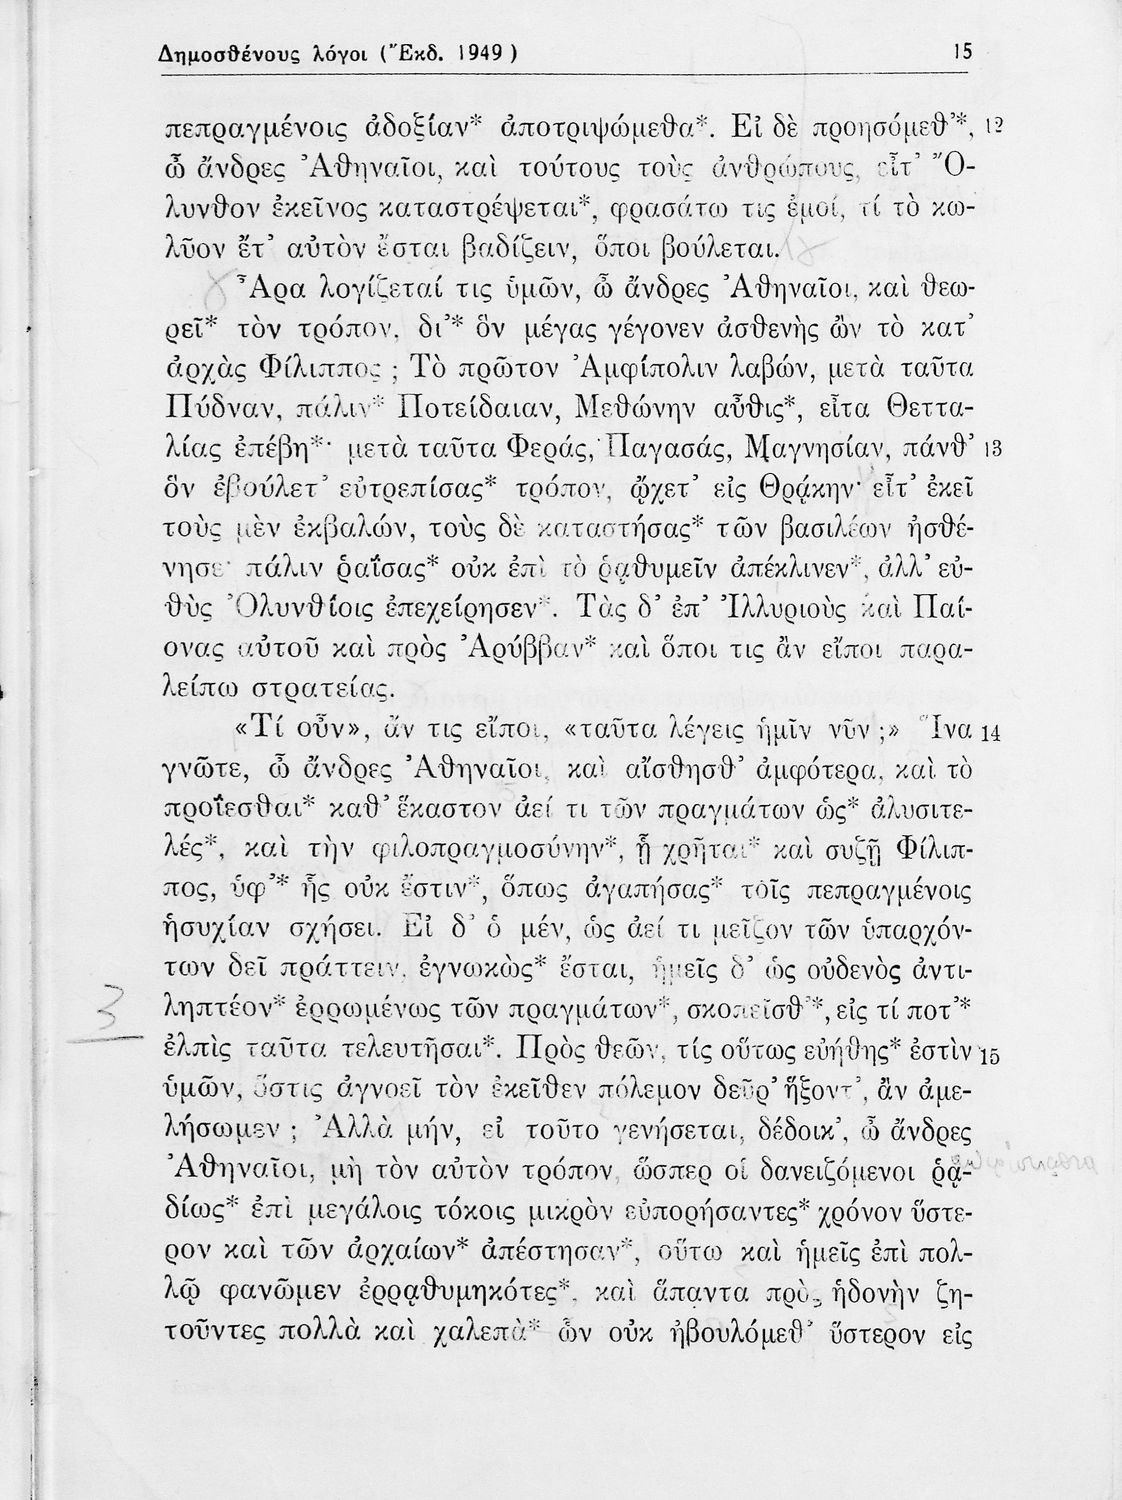 Δημοσθένους λόγοι (Ἔκδ. 1949) 15
πεπραγμένοις ἀδοξίαν* ἀποτριψώμεθα*. Εἰ δὲ προησόμεθ’*, 12
ὦ ἄνδρες Ἀθηναῖοι, καὶ τούτους τοὺς ἀνθρώπους, εἶτ’ Ὄ-
λυνθον ἐκεῖνος καταστρέψεται*, φρασάτω τις ἐμοί, τί τὸ κω-
λῦον ἔτ’ αὐτὸν ἔσται βαδίζειν, ὅποι βούλεται.
Ἆρα λογίζεταί τις ὑμῶν, ὦ ἄνδρες Ἀθηναῖοι, καὶ θεω-
ρεῖ* τὸν τρόπον, δι’* ὃν μέγας γέγονεν ἀσθενὴς ὢν τὸ κατ’
ἀρχὰς Φίλιππος ; Τὸ πρῶτον Ἀμφίπολιν λαβών, μετὰ ταῦτα
Πύδναν, πάλιν* Ποτείδαιαν, Μεθώνην αὖθις*, εἶτα Θεττα-
λίας ἐπέβη*· μετὰ ταῦτα Φεράς, Παγασάς, Μαγνησίαν, πάνθ’ 13
ὃν ἐβούλετ’ εὐτρεπίσας* τρόπον, ᾤχετ’ εἰς Θρᾴκην· εἶτ’ ἐκεῖ
τοὺς μὲν ἐκβαλών, τοὺς δὲ καταστήσας* τῶν βασιλέων ἠσθέ-
νησε· πάλιν ῥαΐσας* οὐκ ἐπὶ τὸ ῥᾳθυμεῖν ἀπέκλινεν*, ἀλλ’ εὐ-
θὺς Ὀλυνθίοις ἐπεχείρησεν*. Τὰς δ’ ἐπ’ Ἰλλυριοὺς καὶ Παί-
ονας αὐτοῦ καὶ πρὸς Ἀρύββαν* καὶ ὅποι τις ἂν εἴποι παρα-
λείπω στρατείας.
«Τί οὖν», ἄν τις εἴποι, «ταῦτα λέγεις ἡμῖν νῦν ;» Ἵνα 14
γνῶτε, ὦ ἄνδρες Ἀθηναῖοι, καὶ αἴσθησθ’ ἀμφότερα, καὶ τὸ
προΐεσθαι* καθ’ ἕκαστον ἀεί τι τῶν πραγμάτων ὡς* ἀλυσιτε-
λές*, καὶ τὴν φιλοπραγμοσύνην*, ᾗ χρῆται* καὶ συζῇ Φίλιπ-
πος, ὑφ’* ἧς οὐκ ἔστιν*, ὅπως ἀγαπήσας* τοῖς πεπραγμένοις
ἡσυχίαν σχήσει. Εἰ δ’ ὁ μέν, ὡς ἀεί τι μεῖζον τῶν ὑπαρχόν-
των δεῖ πράττειν, ἐγνωκὼς* ἔσται, ἡμεῖς δ’ ὡς οὐδενὸς ἀντι-
ληπτέον* ἐρρωμένως τῶν πραγμάτων*, σκοπεῖσθ’*, εἰς τί ποτ’*
3 ἐλπὶς ταῦτα τελευτῆσαι*. Πρὸς θεῶν, τίς οὕτως εὐήθης* ἐστὶν 15
ὑμῶν, ὅστις ἀγνοεῖ τὸν ἐκεῖθεν πόλεμον δεῦρ’ ἥξοντ’, ἂν ἀμε-
λήσωμεν ; Ἀλλὰ μήν, εἰ τοῦτο γενήσεται, δέδοικ’, ὦ ἄνδρες
Ἀθηναῖοι, μὴ τὸν αὐτὸν τρόπον, ὥσπερ οἱ δανειζόμενοι ῥᾳ-
δίως* ἐπὶ μεγάλοις τόκοις μικρὸν εὐπορήσαντες* χρόνον ὕστε-
ρον καὶ τῶν ἀρχαίων* ἀπέστησαν*, οὕτω καὶ ἡμεῖς ἐπὶ πολ-
λῷ φανῶμεν ἐρρᾳθυμηκότες*, καὶ ἅπαντα πρὸς ἡδονὴν ζη-
τοῦντες πολλὰ καὶ χαλεπὰ* ὧν οὐκ ἠβουλόμεθ’ ὕστερον εἰς